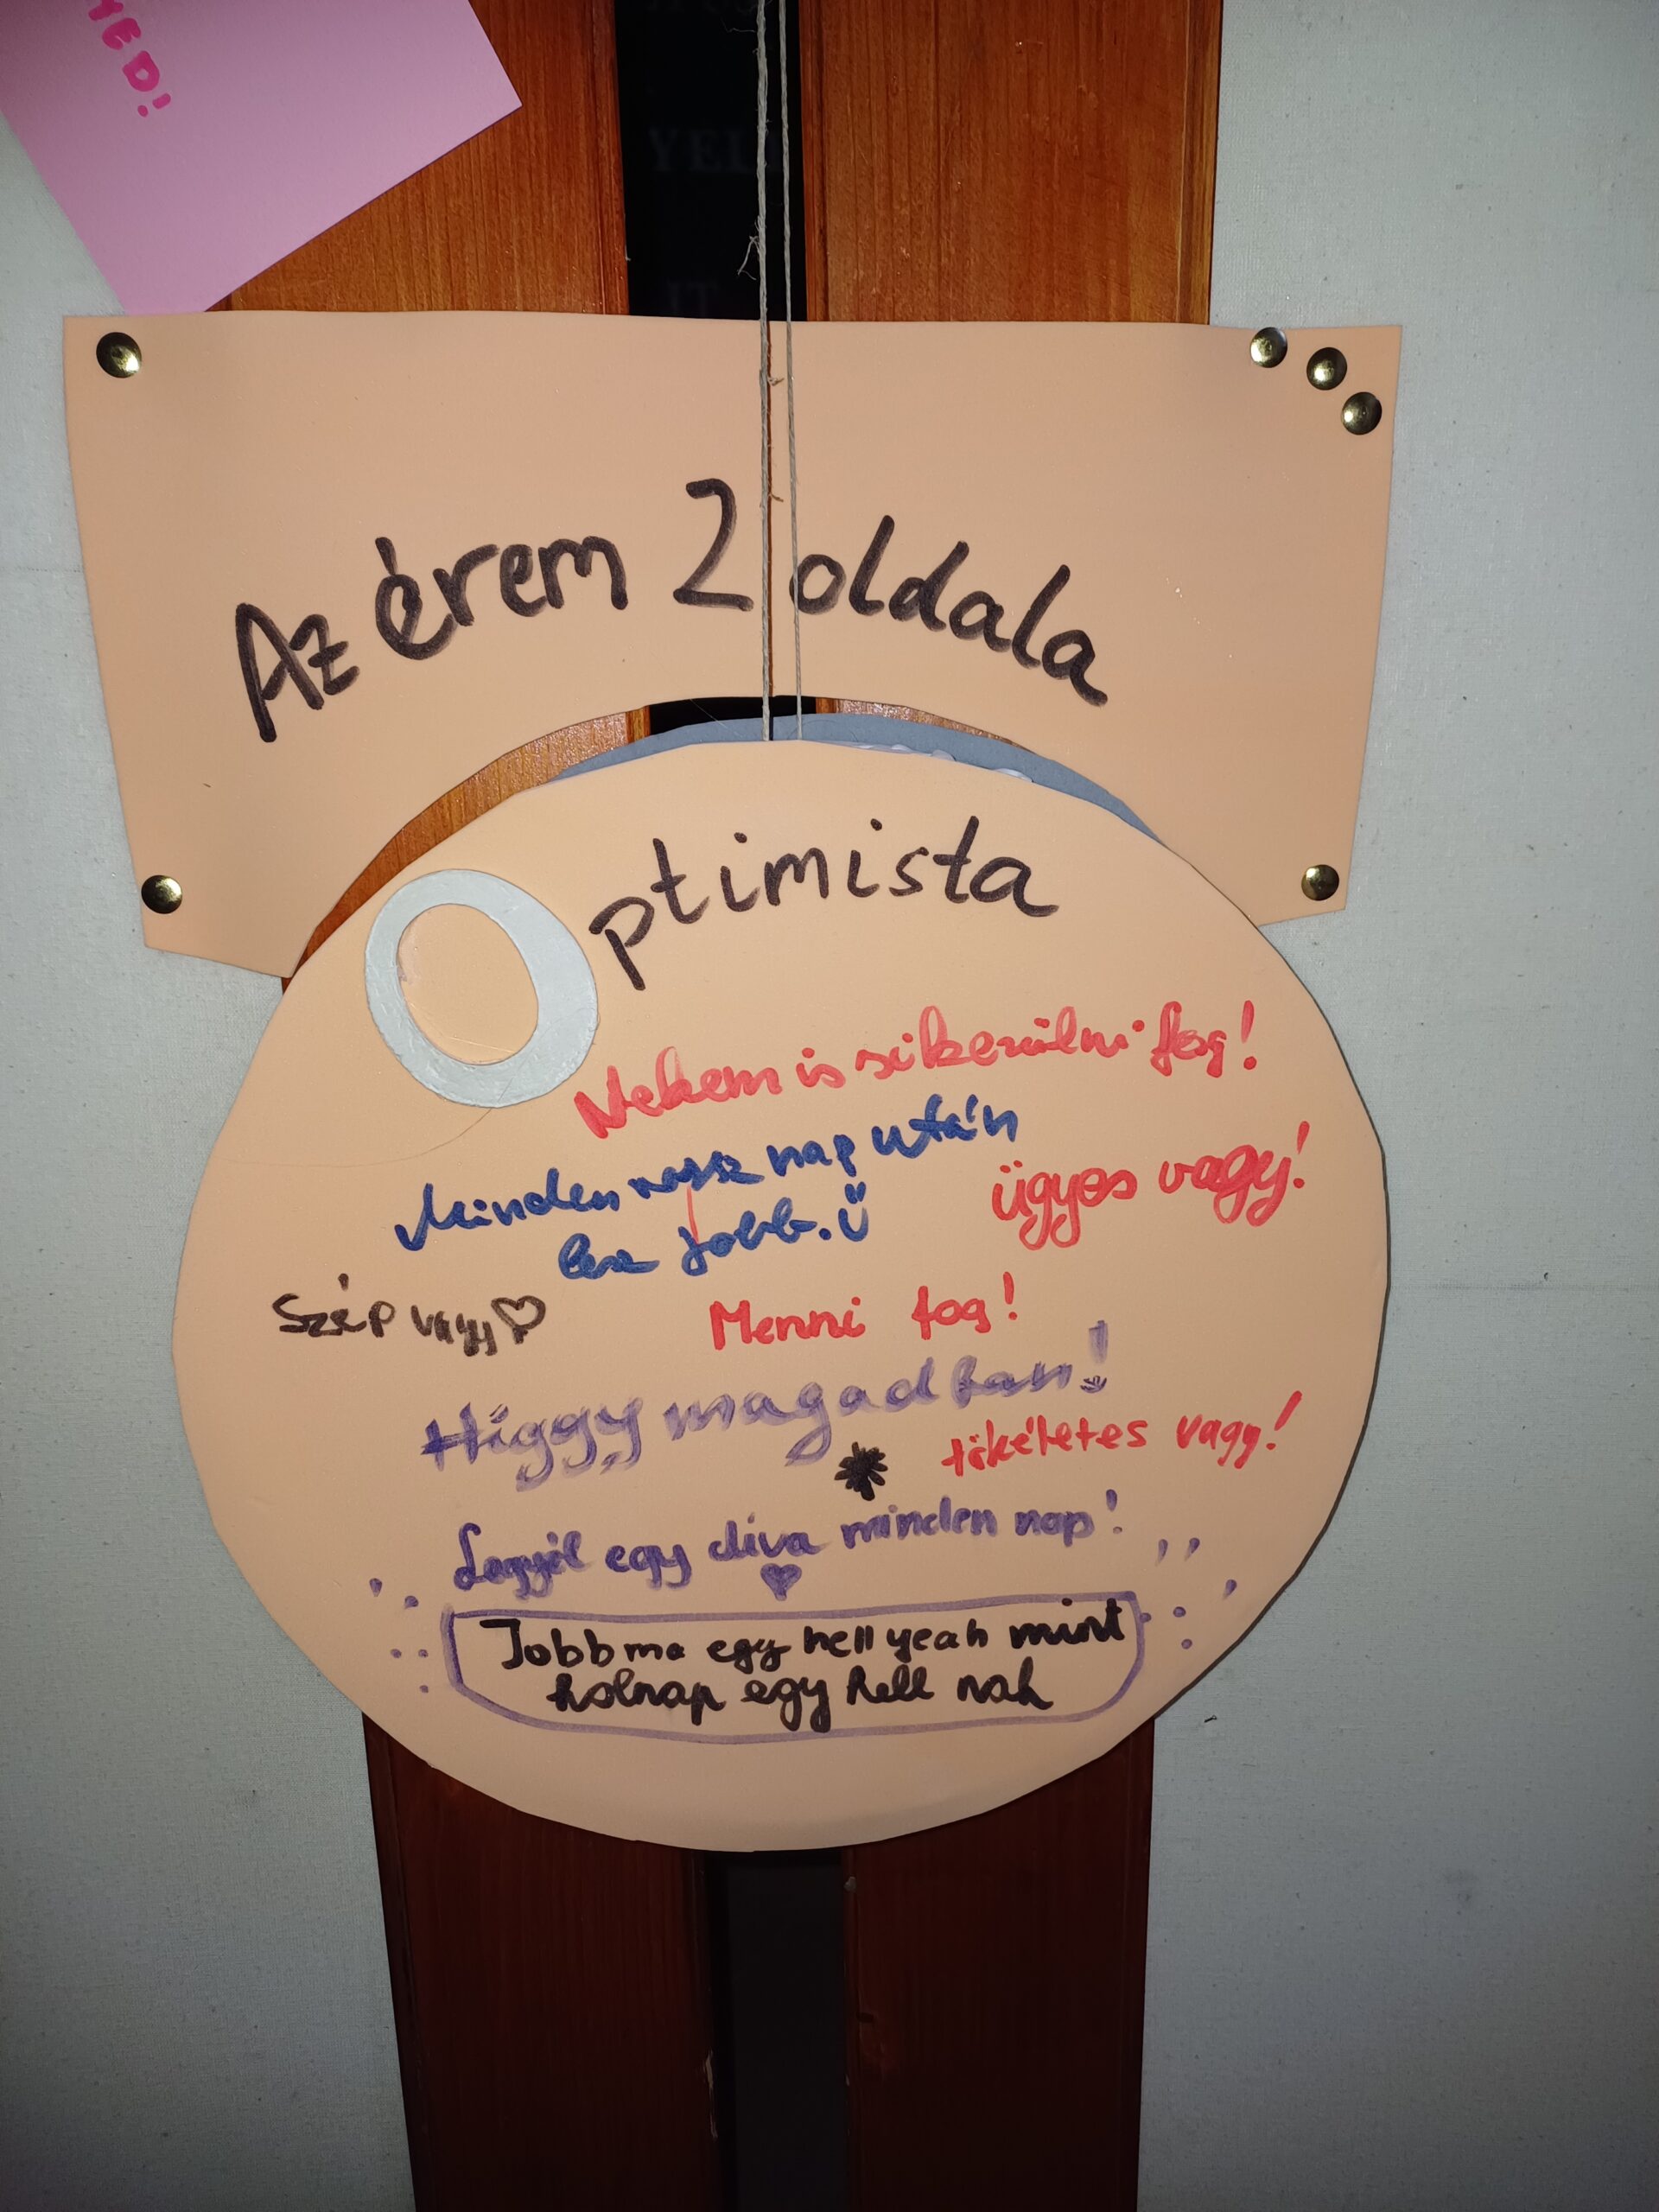 MED!
YEL
IT
Az érem 2 oldala
Optimista
Nekem is sikerülni fog!
Minden rossz nap után
lesz jobb. Ü
ügyes vagy!
Szép vagy ♡
Menni fog!
Higgy magadban!
tökéletes vagy!
Legyél egy díva minden nap!
Jobb ma egy hell yeah mint
holnap egy hell nah